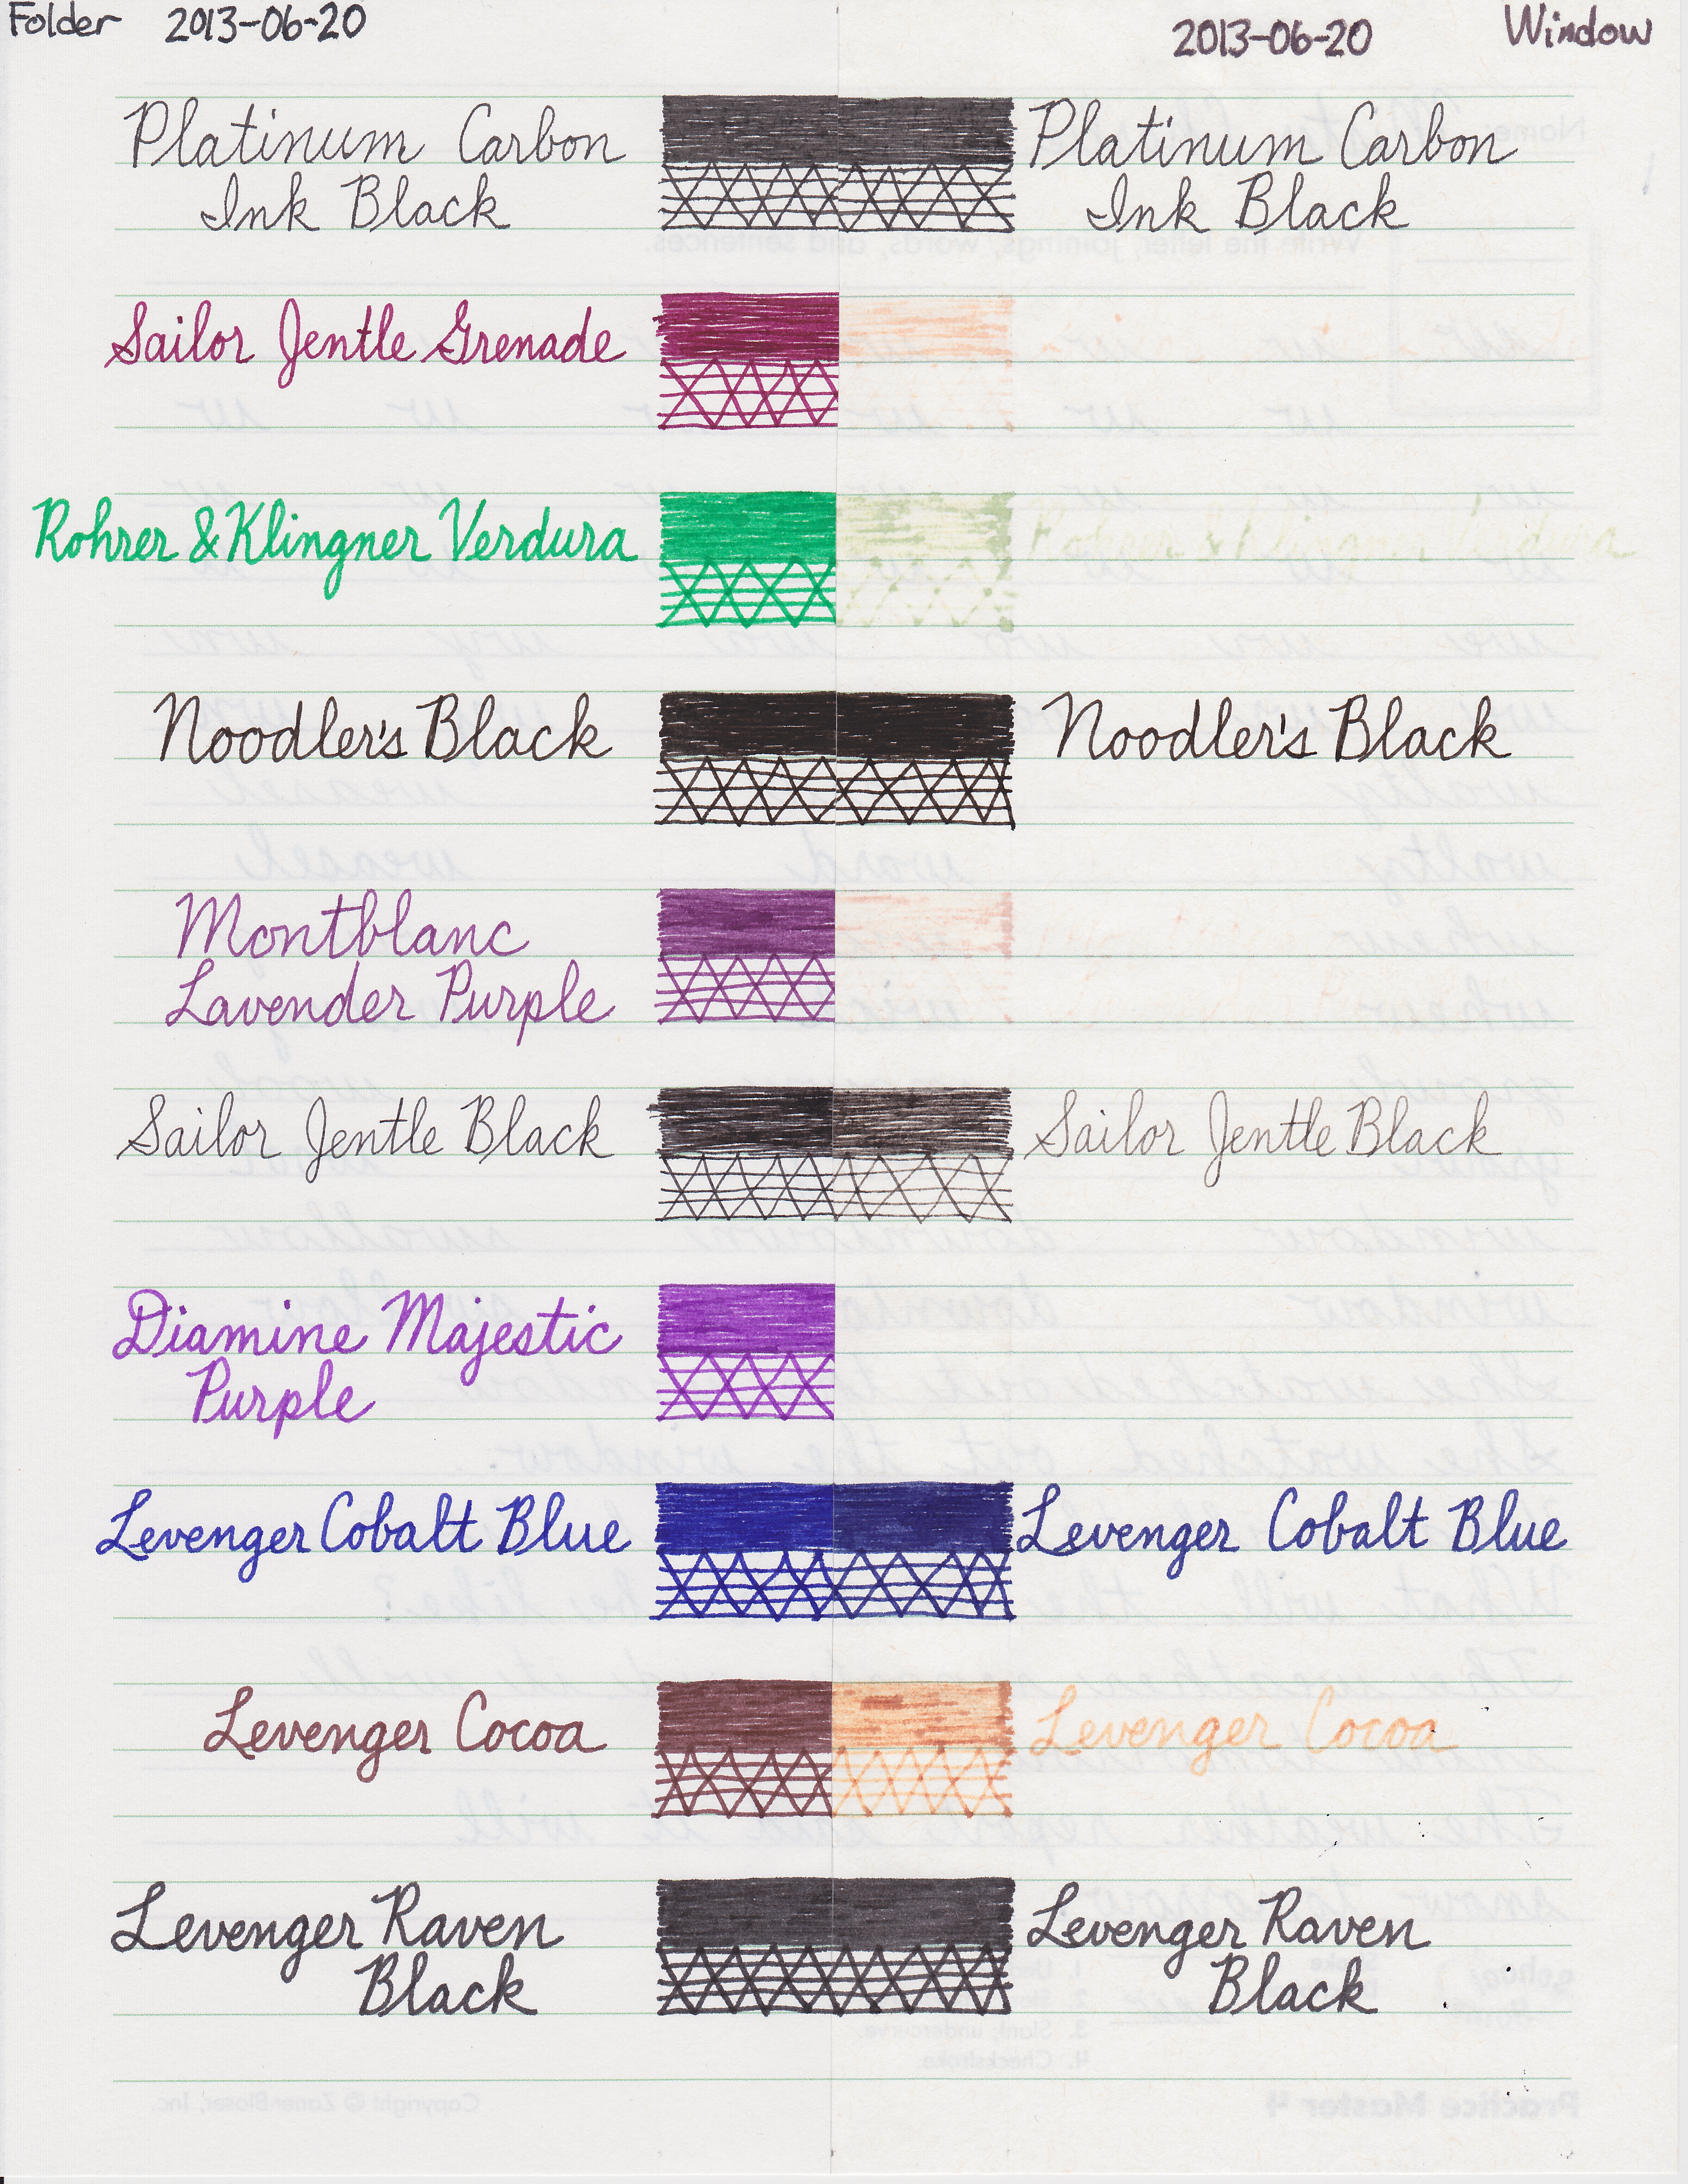 Folder 2013-06-20
2013-06-20 Window
Platinum Carbon
Ink Black
Platinum Carbon
Ink Black
Sailor Jentle Grenade
Rohrer & Klingner Verdura
Rohrer & Klingner Verdura
Noodler's Black
Noodler's Black
Montblanc
Lavender Purple
Sailor Jentle Black
Sailor Jentle Black
Diamine Majestic
Purple
Levenger Cobalt Blue
Levenger Cobalt Blue
Levenger Cocoa
Levenger Cocoa
Levenger Raven
Black
Levenger Raven
Black